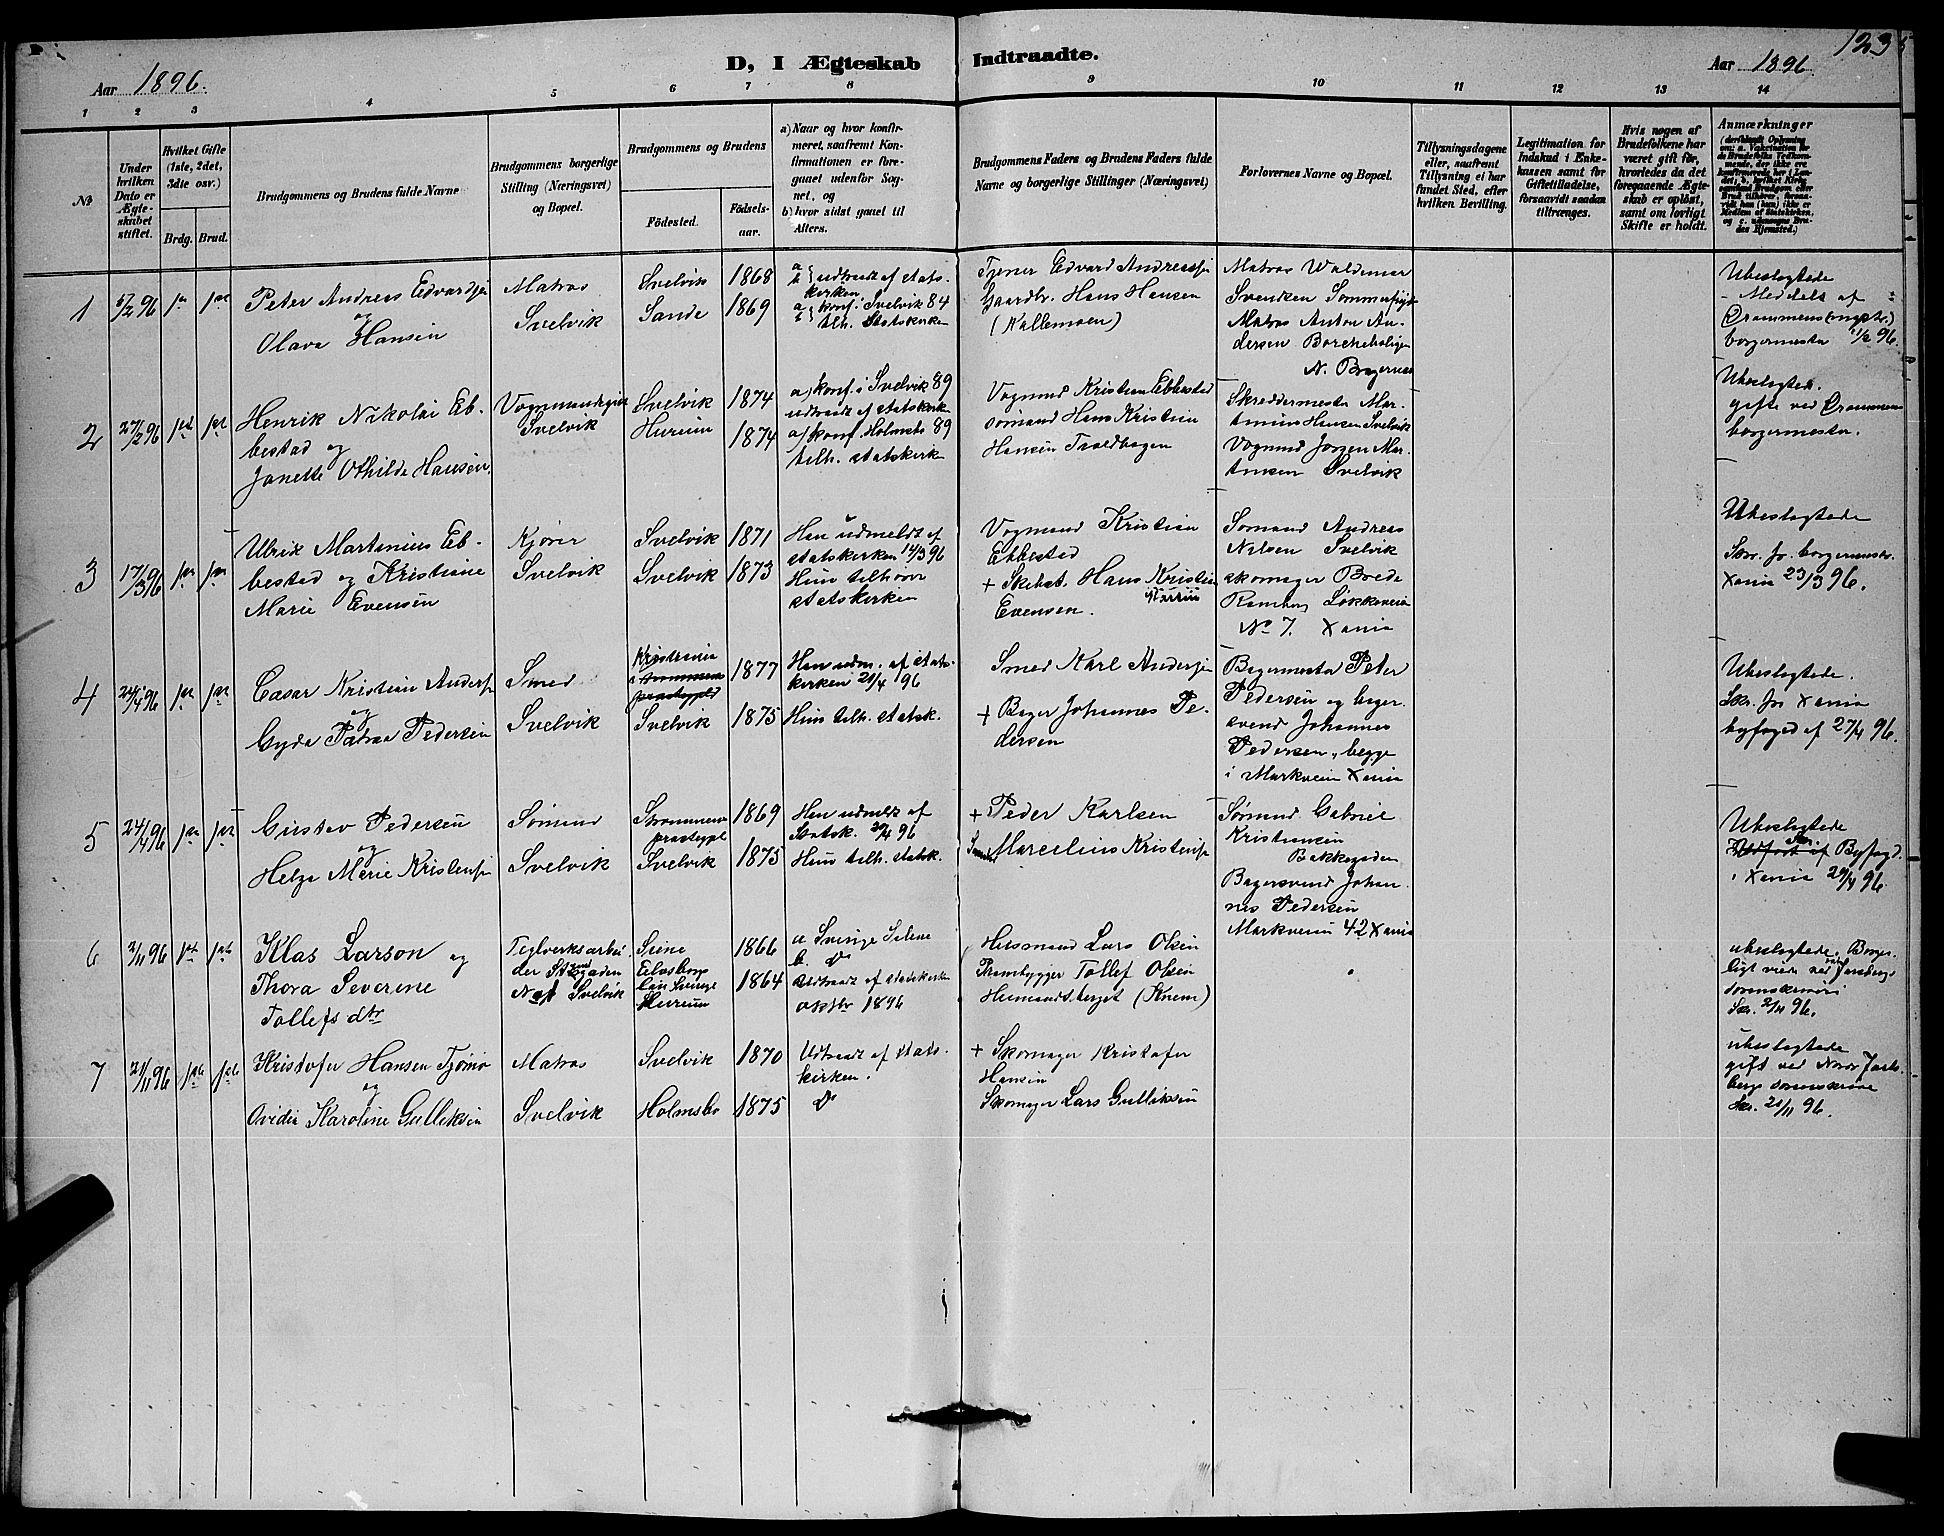 123
D, I Ægteskab Indtraadte.
Aar 1896.
Aar 1896.
1 2 3 4 5 6 7 8 9 10 11 12 13 14
No
Under hvilken Dato er Ægteskabet stiftet.
Hvilket Gifte (1ste, 2det, 3die osv.)
Brdg. Brud.
Brudgommens og Brudens fulde Navne
Brudgommens borgerlige Stilling (Næringsvei) og Bopæl.
Brudgommens og Brudens
Fødested.
Fødsels-aar.
a) Naar og hvor konfirmeret, saafremt Konfirmationen er foregaaet udenfor Sognet, og
b) hvor sidst gaaet til Alters.
Brudgommens Faders og Brudens Faders fulde Navne og borgerlige Stillinger (Næringsvei)
Forlovernes Navne og Bopæl.
Tillysningsdagene eller, saafremt Tillysning ei har fundet Sted, efter hvilken Bevilling.
Legitimation for Indskud i Enkekassen samt for Giftetilladelse, forsaavidt saadan tiltrænges.
Hvis nogen af Brudefolkene har været gift før, hvorledes da det foregaaende Ægteskab er opløst, samt om lovligt Skifte er holdt.
Anmærkninger
1
5/2 96
Peter Andreas Edvardsen
og
Olava Hansen
Matros
Svelvik
Svelvik 1868
Sande 1869
a b udtraadt af statskirken
a konf. i Svelvik 84
b tilh. Statskirken
Tjener Edvard Andreassen
Gaardbr. Hans Hansen
(Kallemoen)
Matros Waldemar
Svendsen
Matros Anton Andersen
N. Bragernes
Ubeslægtede
- Meddelt af
Drammens
borgermester 11/2 96.
2
27/2 96
1st 1st
Henrik Nikolai Ebbestad og
Janette Othilde Hansen.
Svelvik
Svelvik 1874
Hurum 1874
a) konf. i Svelvik 89
udtraadt af statskirken
a) konf. Holmsbo 89
tilh. statskirken
Vogmand Kristian Ebbestad
sømand Hans Kristian
Hansen Troldhagen
Skreddermester Martinius Hansen Svelvik
Vogmand Jørgen Martinsen Svelvik
Ubeslægtede.
gifte ved Drammens
borgermester.
3
17/3 96
Ulrik Martinius Ebbestad og Kristiane
Marie Evensen
Kjører
Svelvik
Svelvik 1871
Svelvik 1873
Han udmeldt af
statskirken 14/3 96
Hun tilhører
statskirken
Vogmand Kristian
Ebbestad
+ Skibst. Hans Kristian
Evensen.
Sømand Andreas
Nilsen Svelvik
skomager Brede
Ramberg Løkkaveien
No 7. Xania
Ubeslægtede
Skr. fr. borgermester
Xania 23/3 96.
4
24/4 96
Cæsar Kristian Andersen
og
Gyda Petrea Pedersen
Smed
Svelvik
Kristiania 1877
Svelvik 1875
Han udm. af statskirken 21/4 96
Hun tilh. statsk.
Smed Karl Andersen
+ Bager Johannes Pedersen
Bagermester Peter
Pedersen og bagersvend Johannes
Pedersen, begge
i Markveien Xania
Ubeslægtede.
Skr. fr. Xania
byfoged af 27/4 96.
5
24/4 96
Gustav Pedersen
og
Helga Marie Kristensen
Sømand
Svelvik
Strømmens
præstegjeld 1869
Svelvik 1875
Han udmeldt af
Statsk. 20/4 96
Hun tilh. statsk.
+ Peder Karlsen
Marcelius Kristensen
Sømand Gabriel
Kristiansen
Bakkegaden
Bagersvend Johannes Pedersen
Markveien 42 Xania
Ubeslægtede
Skr. Byfogd.
i Xania 29/4 96.
6
2/11 96
1st 1st
Klas Larson og
Thora Severine
Tollefsdtr
Teglverksarbeider
Svelvik
1866
Hurum 1864
a Sverige
b. Do
Udtraadt af statskirken
oktbr 1896
Husmand Lars Olsen
Prambygger Tollef Olsen
(Knem)
ubeslægtede. Borgerligt viede ved Jarlsberg
sorenskriveri
Skr. 2/11 96.
7
21/11 96
Kristofer Hansen Tjømø
og
Ovidia Karoline Gulliksen
Matros
Svelvik
Svelvik 1870
Holmsbo 1875
Udtraadt af statskirken.
Do
+ Skomager Kristofer
Hansen
Skomager Lars Gulliksen
ubeslægtede
gift ved Nordre Jarlsbergs sorenskriver
Skr. 21/11 96.